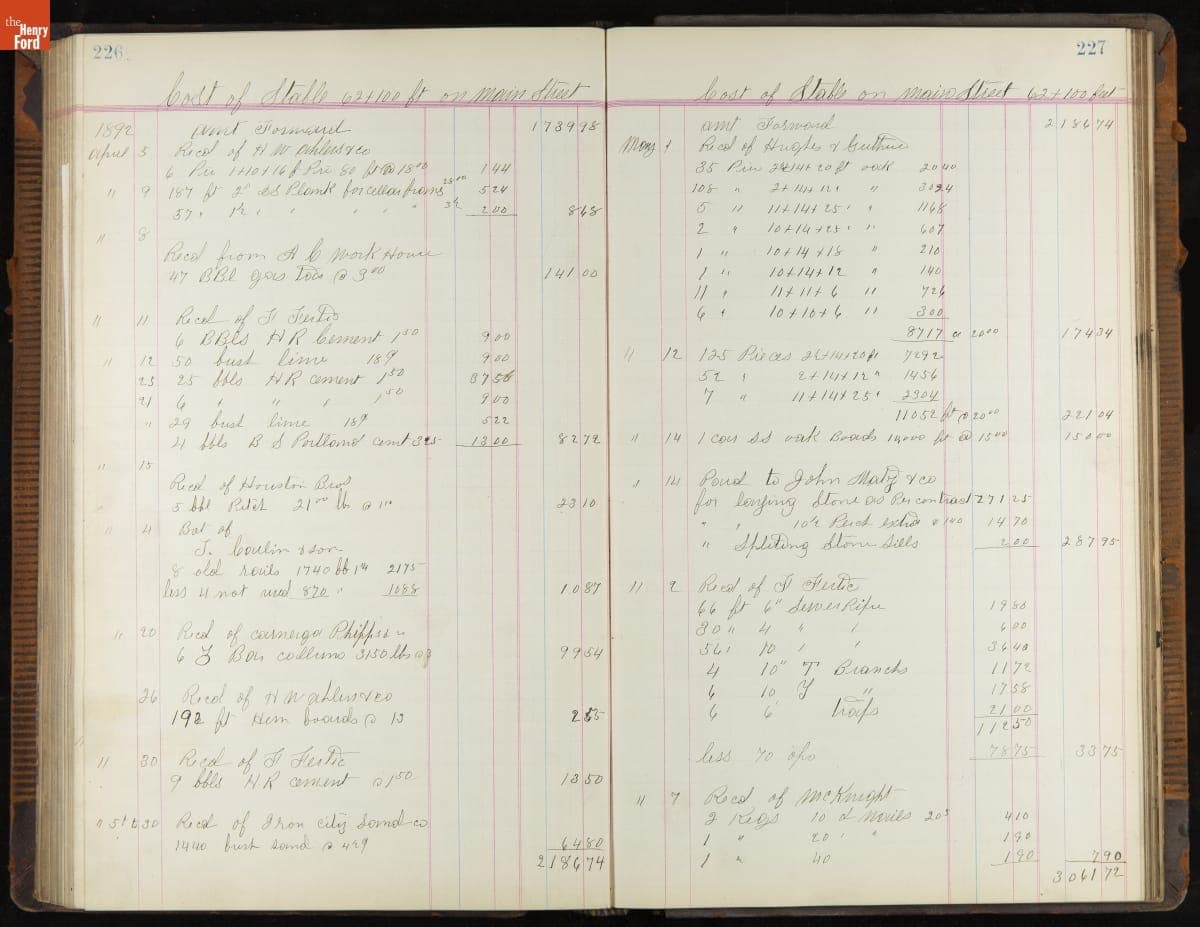 the
Henry
Ford
226
Cost of Stable 62+100 ft on Main Street
1892 amt Forward 173998
April 5 Recd of H W Ahlers & co
6 Pie 1+10+16 ft Pie 80 ft @ 1800 144
" 9 187 ft 2" SS Plank for cellar frams 2800 524
57 " 1½ " " " " " 3½ 200 868
" 8
Recd from A C Work House
47 BBl gas tar @ 300 14100
" 11 Recd of F Fertic
6 BBls HR Cement 150 900
" 12 50 bush lime 18¢ 900
25 25 bbls HR cement 150 3750
21 6 " " " 150 900
" 29 bush lime 18¢ 522
4 bbls B S Portland cemt 325 1300 8272
" 15
Recd of Houston Bros
5 bbl Pitch 2100 lbs @ 2310
" 4 Bot of
J. Coulin & son
8 old rails 1740 lb 1¼ 2175
less 4 not used 870 " 1088 1087
" 20 Recd of Carneiga Phipps "
6 Z Bar collums 3150 lbs @ 9954
26 Recd of H W Ahlers & co
192 ft Hem boards @ 13 265
" 30 Recd of F Fertic
9 bbls HR cement @ 150 1350
" 5 to 30 Recd of Iron City Sand co
1440 bush sand @ 4½¢ 6480
218674
227
Cost of Stable on Main Street 62+100 feet
amt Forward 218674
May 1 Recd of Hughes & Guthrie
35 Pies 2½+14+20 ft oak 2040
108 " 2+14+12 " " 3024
5 " 11+14+25 " " 1168
2 " 10+14+25 " " 607
1 " 10+14+18 " 210
1 " 10+14+12 " 140
11 " 11+11+6 " 726
6 " 10+10+6 " 300
8717 @ 2000 17434
" 12 125 Pieces 2½+14+20 ft 7292
52 " 2+14+12 " 1456
7 " 11+14+25 " 2304
11052 ft @ 2000 22104
" 14 1 car SS oak Boads 10000 ft @ 1500 15000
" 14 Paid to John Matz & co
for laying Stone as Per contract 27125
" " 10½ Perch extra @ 140 1470
" Spliting Stone Sills 200 28795
" 2 Recd of F Fertic
66 ft 6" Sewer Pipe 1980
30 " 4 " " 600
56 " 10 " " 3640
4 10" T Branchs 1172
6 10 Y " 1758
6 6" traps 2100
11250
less 70 7875 3375
" 7 Recd of McKnight
2 Kegs 10 d Nails 205 410
1 " 20 " " 190
1 " 40 190 790
306172